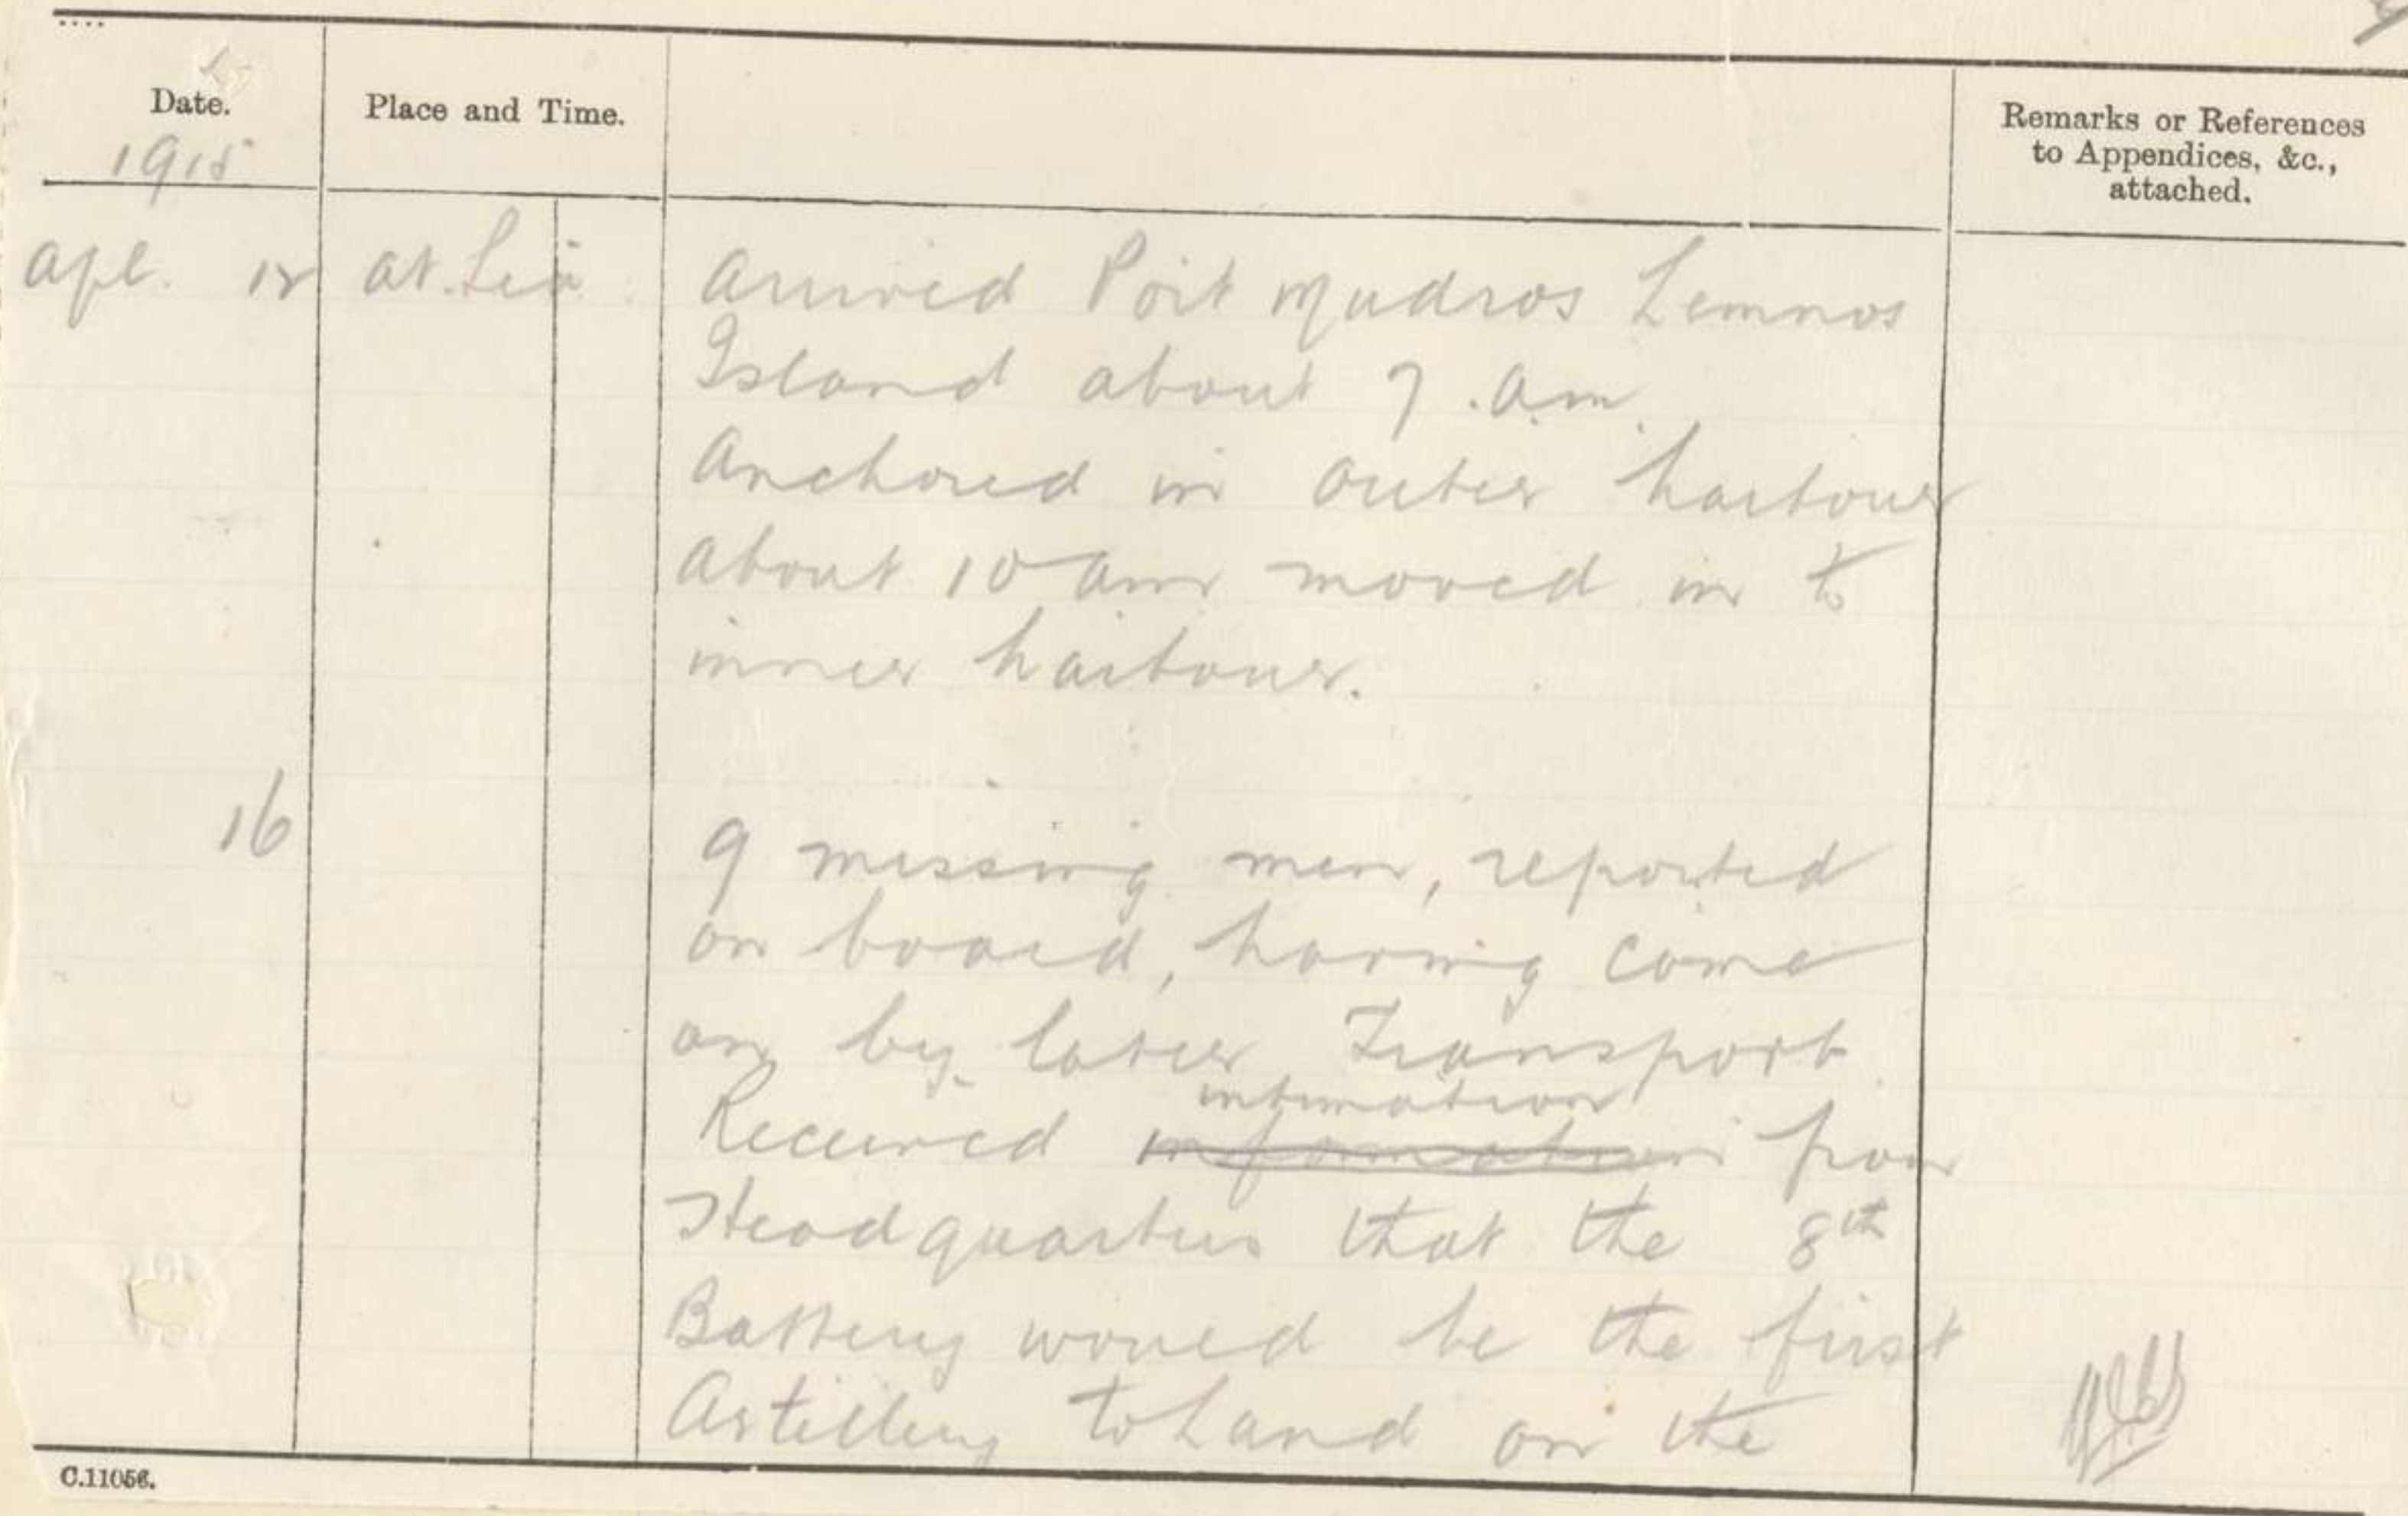 Date.
Place and Time.
Remarks or References
to Appendices, &c.,
attached.
1915
Apl. at Sea Arrived Port Mudros Lemnos
Island about 7.am.
Anchored in outer harbour
about 10 am moved in to
inner harbour.
16 9 missing men, reported
on board, having come
on by later Transport.
intimation
Received information from
Headquarters that the 8th
Battery would be the first
Artillery to Land on the
C.11056.